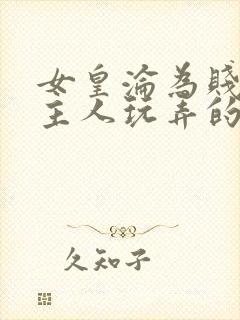 女皇淪為賤
主人玩弄的
久知子